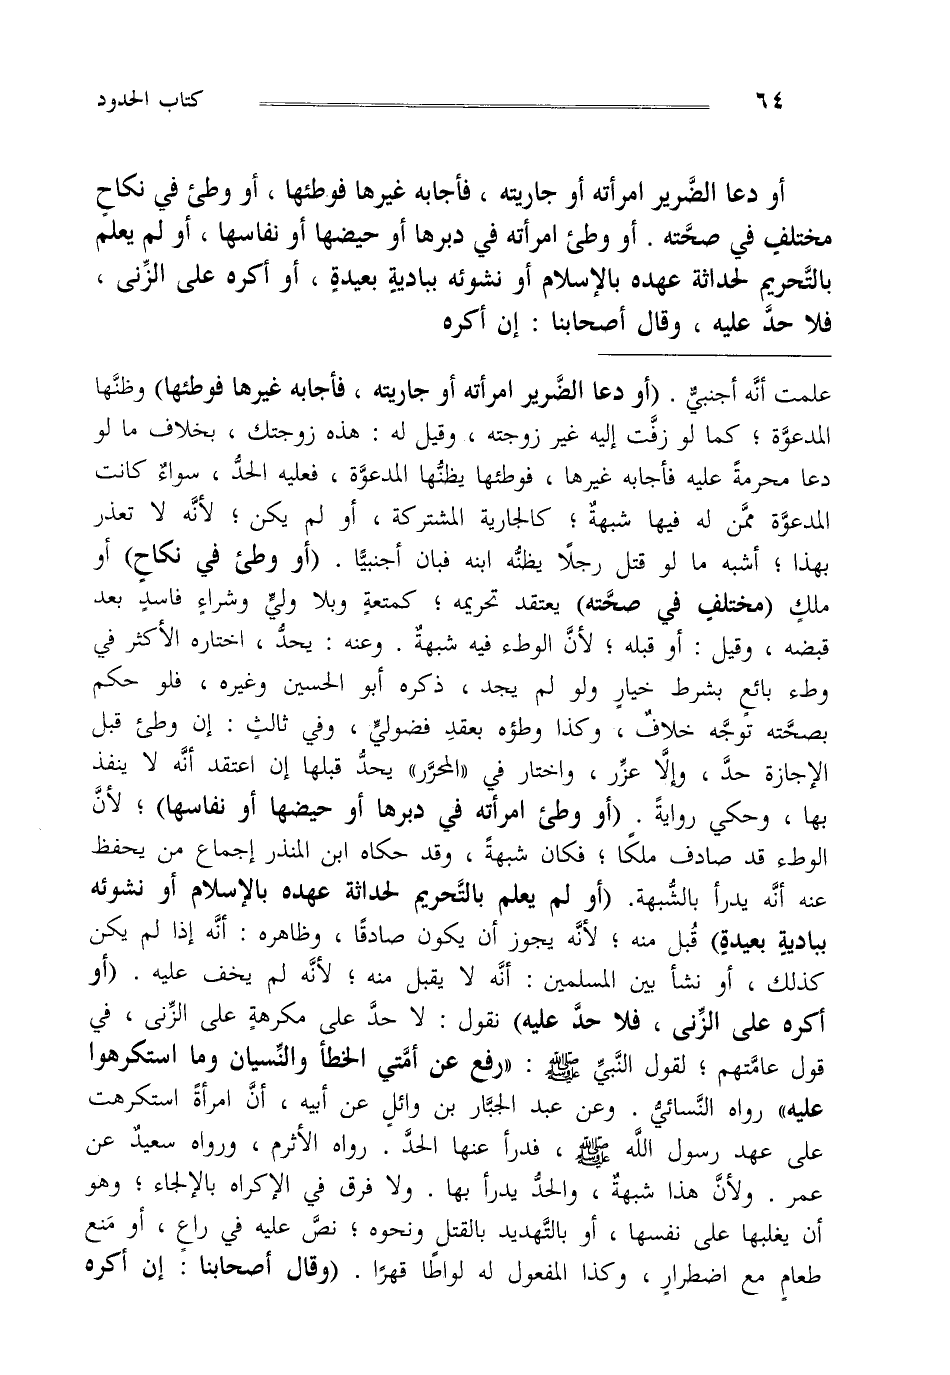 ٦٤ كتاب الحدود
أو دعا الضَّرير امرأته أو جاريته ، فأجابه غيرها فوطئها ، أو وطئ في نكاحٍ
مختلفٍ في صحَّته . أو وطئ امرأته في دبرها أو حيضها أو نفاسها ، أو لم يعلم
بالتَّحريم لحداثة عهده بالإسلام أو نشوئه بباديةٍ بعيدةٍ ، أو أكره على الزِّنى ،
فلا حدَّ عليه ، وقال أصحابنا : إن أكره
علمت أنَّه أجنبيٌّ . (أو دعا الضَّرير امرأته أو جاريته ، فأجابه غيرها فوطئها) وظنَّها
المدعوَّة ؛ كما لو زفَّت إليه غير زوجته ، وقيل له : هذه زوجتك ، بخلاف ما لو
دعا محرمةً عليه فأجابه غيرها ، فوطئها يظنُّها المدعوَّة ، فعليه الحدُّ ، سواءٌ كانت
المدعوَّة ممَّن له فيها شبهةٌ ؛ كالجارية المشتركة ، أو لم يكن ؛ لأنَّه لا تعذر
بهذا ؛ أشبه ما لو قتل رجلًا يظنُّه ابنه فبان أجنبيًّا . (أو وطئ في نكاحٍ) أو
ملكٍ (مختلفٍ في صحَّته) يعتقد تحريمه ؛ كمتعةٍ وبلا وليٍّ وشراءٍ فاسدٍ بعد
قبضه ، وقيل : أو قبله ؛ لأنَّ الوطء فيه شبهةٌ . وعنه : يحدُّ ، اختاره الأكثر في
وطء بائعٍ بشرط خيارٍ ولو لم يجد ، ذكره أبو الحسين وغيره ، فلو حكم
بصحَّته توجَّه خلافٌ ، وكذا وطؤه بعقدِ فضوليٍّ ، وفي ثالثٍ : إن وطئ قبل
الإجازة حدَّ ، وإلَّا عزِّر ، واختار في «المحرَّر» يحدُّ قبلها إن اعتقد أنَّه لا ينفذ
بها ، وحكي روايةً . (أو وطئ امرأته في دبرها أو حيضها أو نفاسها) ؛ لأنَّ
الوطء قد صادف ملكًا ؛ فكان شبهةً ، وقد حكاه ابن المنذر إجماع من يحفظ
عنه أنَّه يدرأ بالشُّبهة. (أو لم يعلم بالتَّحريم لحداثة عهده بالإسلام أو نشوئه
بباديةٍ بعيدةٍ) قُبل منه ؛ لأنَّه يجوز أن يكون صادقًا ، وظاهره : أنَّه إذا لم يكن
كذلك ، أو نشأ بين المسلمين : أنَّه لا يقبل منه ؛ لأنَّه لم يخف عليه . (أو
أكره على الزِّنى ، فلا حدَّ عليه) نقول : لا حدَّ على مكرهةٍ على الزِّنى ، في
قول عامَّتهم ؛ لقول النَّبيِّ ﷺ : «رفع عن أمَّتي الخطأ والنِّسيان وما استكرهوا
عليه» رواه النَّسائيُّ . وعن عبد الجبَّار بن وائلٍ عن أبيه ، أنَّ امرأةً استكرهت
على عهد رسول اللَّه ﷺ ، فدرأ عنها الحدَّ . رواه الأثرم ، ورواه سعيدٌ عن
عمر . ولأنَّ هذا شبهةٌ ، والحدُّ يدرأ بها . ولا فرق في الإكراه بالإلجاء ؛ وهو
أن يغلبها على نفسها ، أو بالتَّهديد بالقتل ونحوه ؛ نصَّ عليه في راعٍ ، أو مَنع
طعامٍ مع اضطرارٍ ، وكذا المفعول له لواطًا قهرًا . (وقال أصحابنا : إن أكره